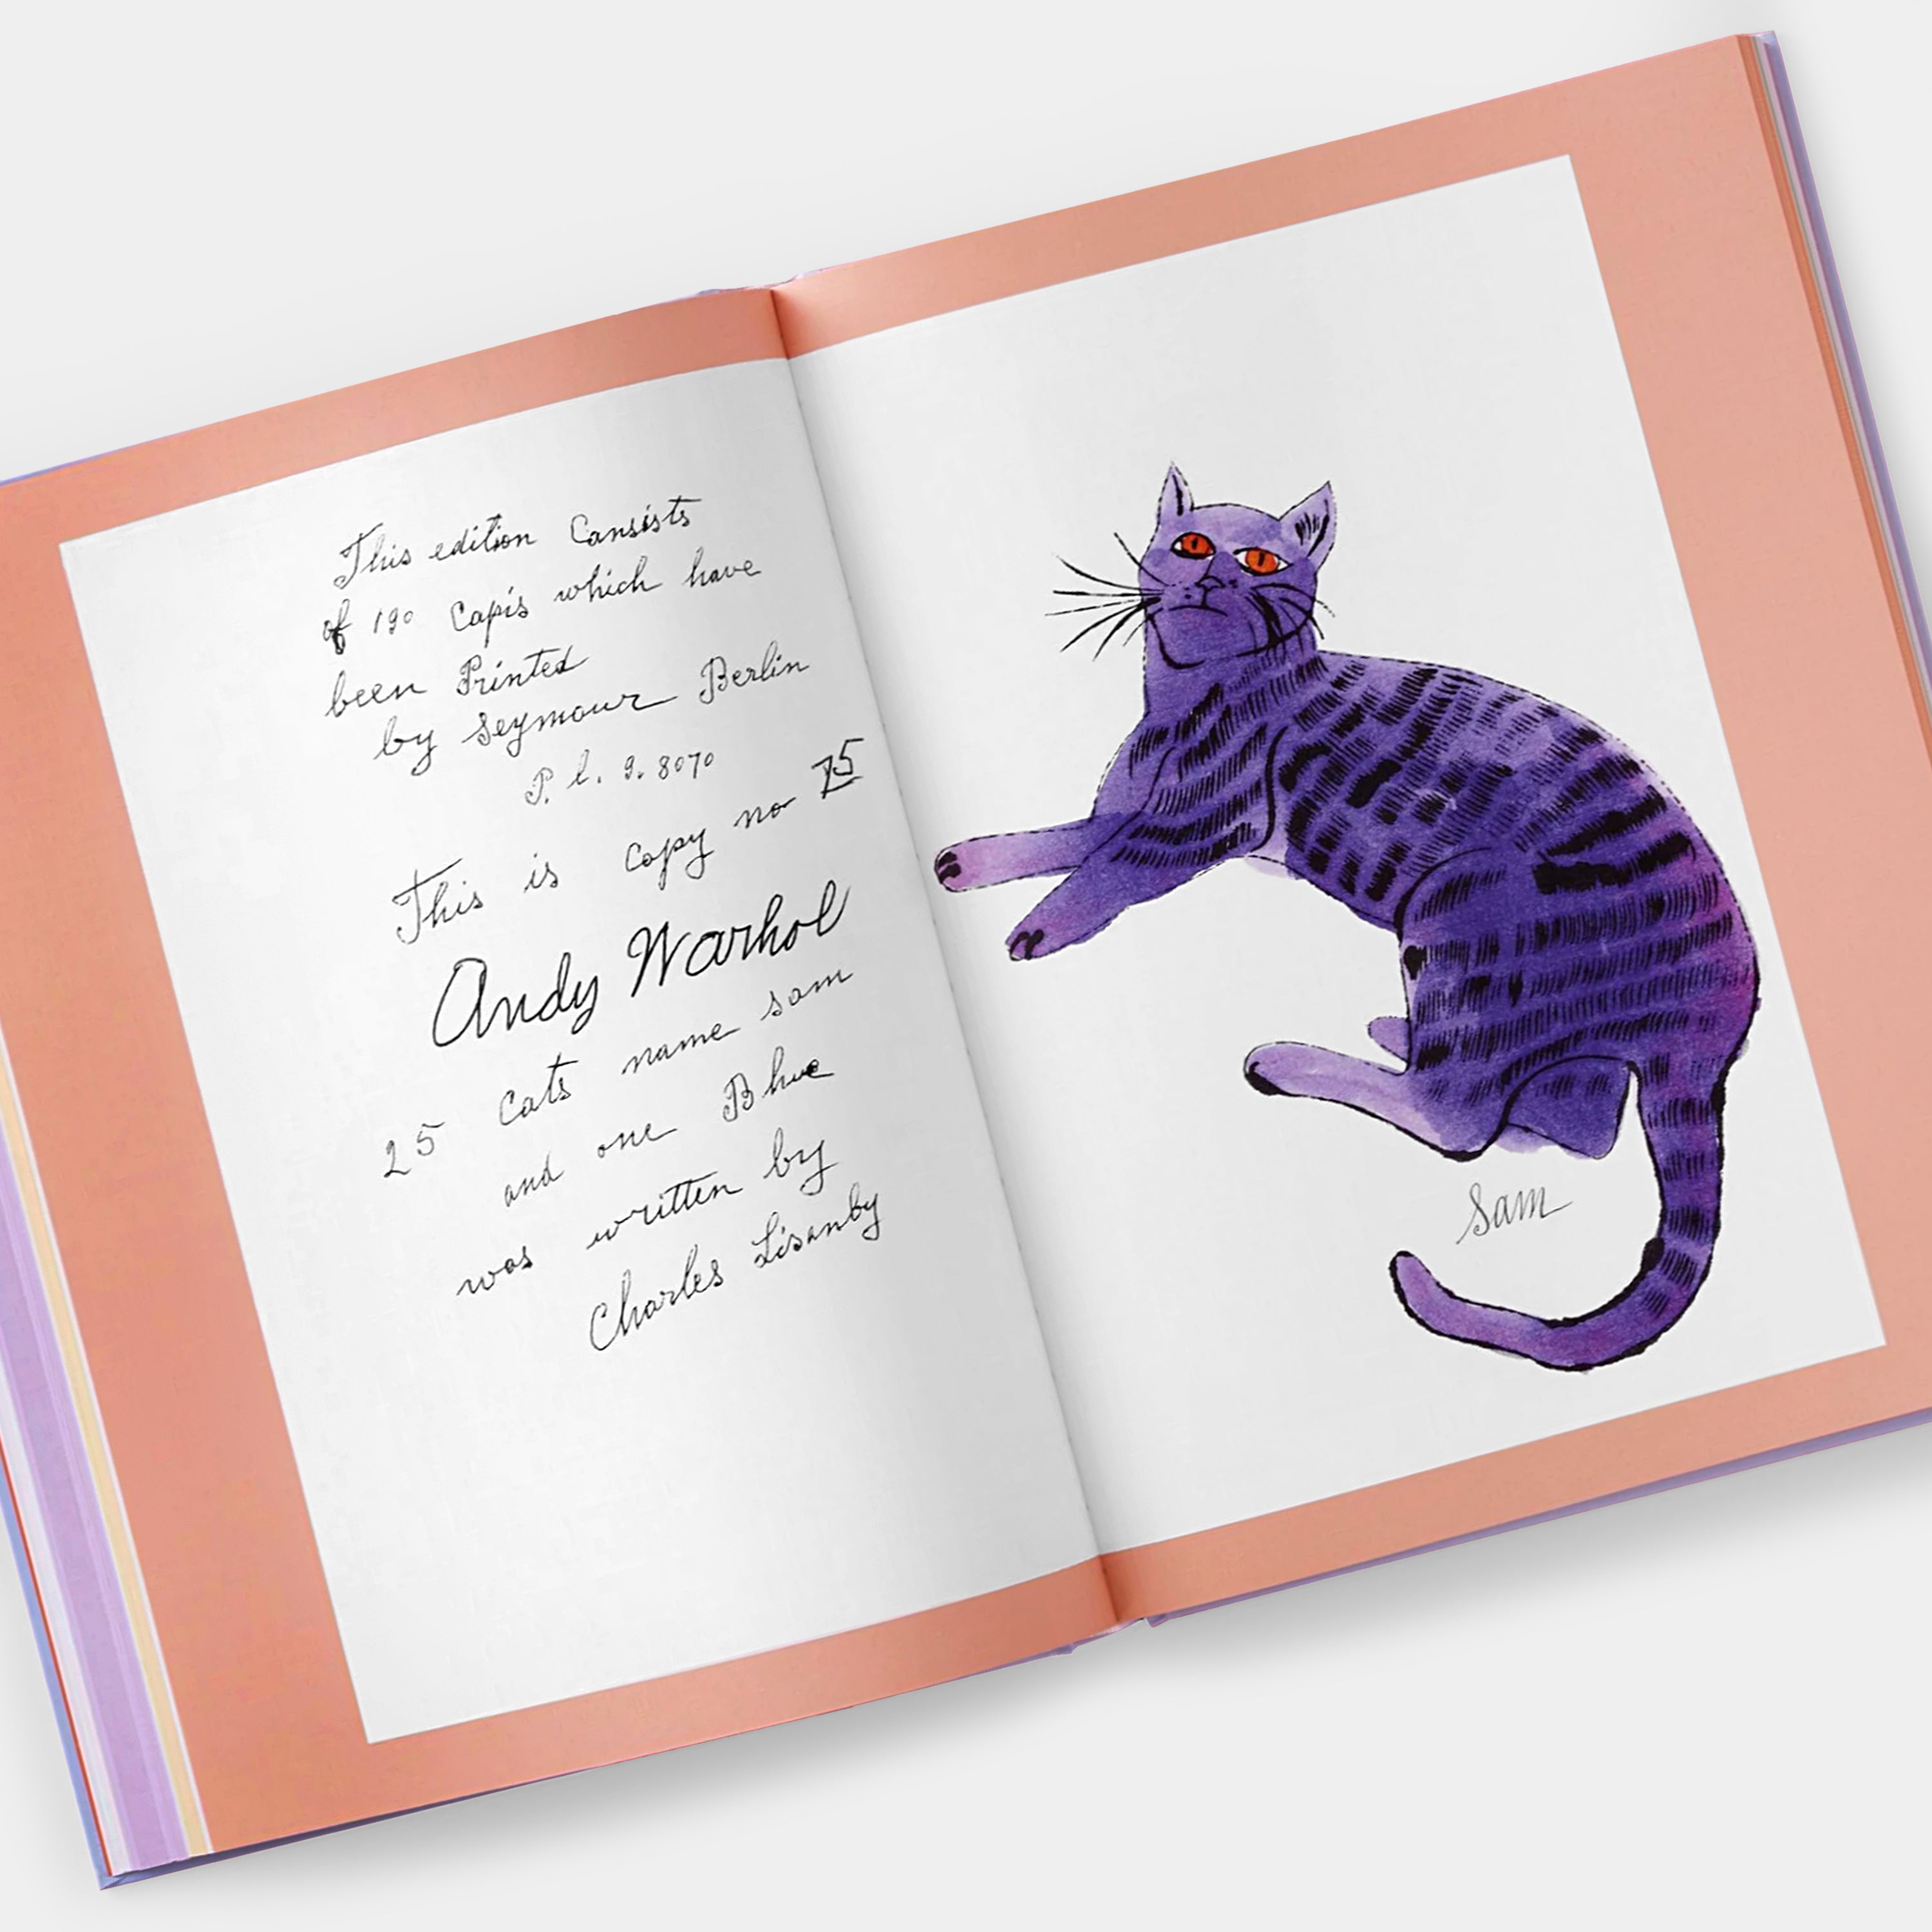 This edition Cansists
of 190 Capis which have
been Printed
by Seymour Berlin
P. l. 9. 8070
This is Copy no 75
Andy Warhol
25 Cats name sam
and one Blue
was written by
Charles Lisanby
Sam